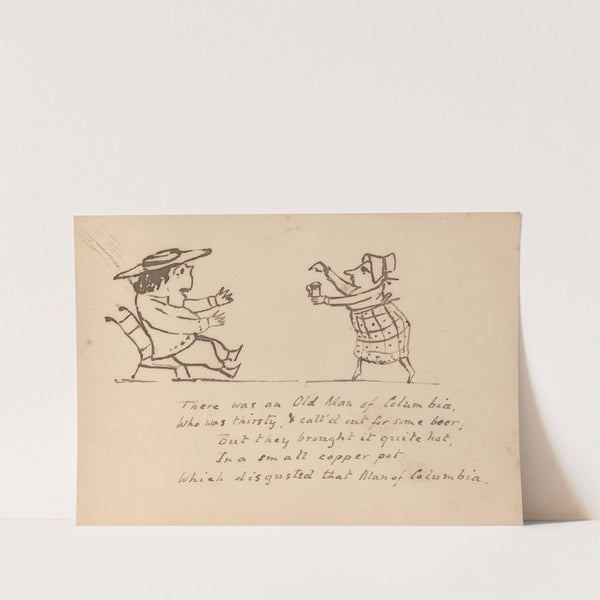 There was an Old Man of Columbia,
Who was thirsty, & call'd out for some beer;
But they brought it quite hot,
In a small copper pot
Which disgusted that Man of Columbia.